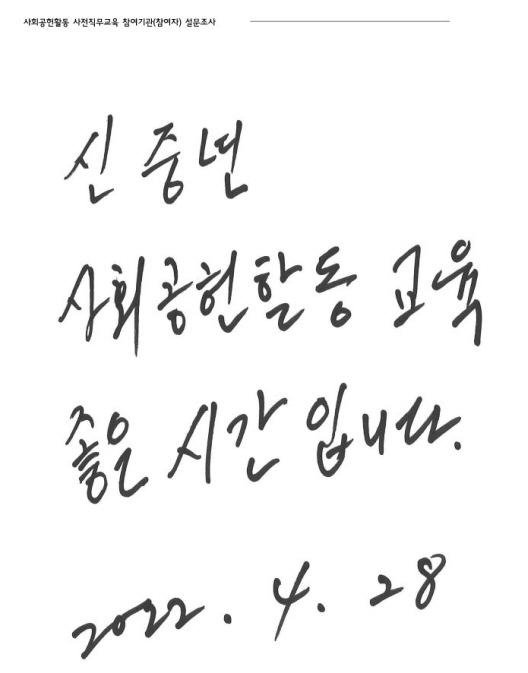 사회공헌활동 사전직무교육 참여기관(참여자) 설문조사
신 중년
사회공헌활동 교육
좋은 시간 입니다.
2022. 4. 28